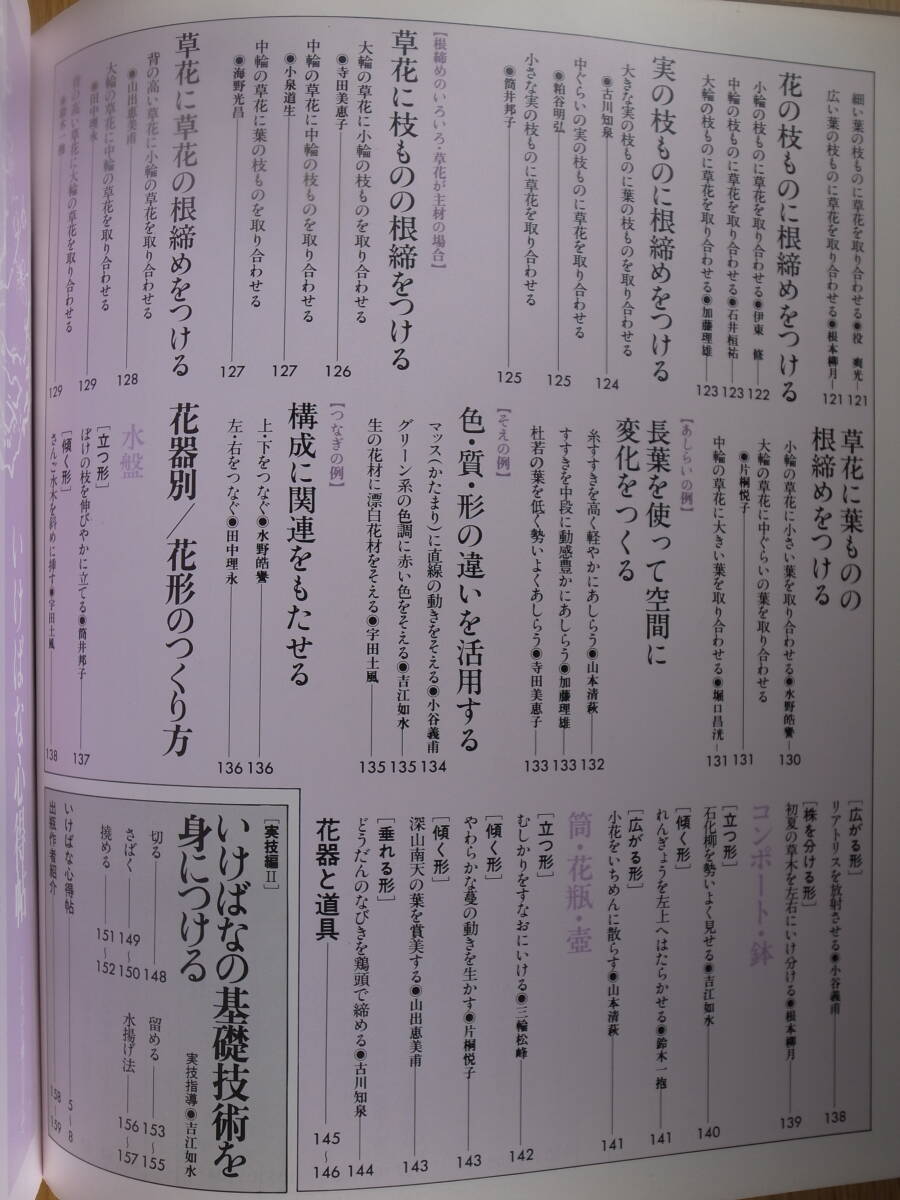 細い葉の枝ものに草花を取り合わせる◉役　爽光 121
広い葉の枝ものに草花を取り合わせる◉根本柳月 121
花の枝ものに根締めをつける
小輪の枝ものに草花を取り合わせる◉伊東　條 122
中輪の枝ものに草花を取り合わせる◉石井恒祐 123
大輪の枝ものに草花を取り合わせる◉加藤理雄 123
実の枝ものに根締めをつける
大きな実の枝ものに葉の枝ものを取り合わせる
◉古川知泉 124
中ぐらいの実の枝ものに草花を取り合わせる
◉粕谷明弘 125
小さな実の枝ものに草花を取り合わせる
◉筒井邦子 125
【根締めのいろいろ・草花が主材の場合】
草花に枝ものの根締をつける
大輪の草花に小輪の枝ものを取り合わせる
◉寺田美恵子 126
中輪の草花に中輪の枝ものを取り合わせる
◉小泉道生 127
中輪の草花に葉の枝ものを取り合わせる
◉海野光昌 127
草花に草花の根締めをつける
背の高い草花に小輪の草花を取り合わせる
◉山出恵美甫 128
大輪の草花に中輪の草花を取り合わせる
◉田中理永 129
背の高い草花に大輪の草花を取り合わせる
129
草花に葉ものの
根締めをつける
小輪の草花に小さい葉を取り合わせる◉水野皓譽 130
大輪の草花に中ぐらいの葉を取り合わせる
◉片桐悦子 131
中輪の草花に大きい葉を取り合わせる◉堀口昌洸 131
【あしらいの例】
長葉を使って空間に
変化をつくる
糸すすきを高く軽やかにあしらう◉山本清萩 132
すすきを中段に動感豊かにあしらう◉加藤理雄 133
杜若の葉を低く勢いよくあしらう◉寺田美恵子 133
【そえの例】
色・質・形の違いを活用する
マッス(かたまり)に直線の動きをそえる◉小谷義甫 134
グリーン系の色調に赤い色をそえる◉吉江如水 135
生の花材に漂白花材をそえる◉宇田土風 135
【つなぎの例】
構成に関連をもたせる
上・下をつなぐ◉水野皓譽 136
左・右をつなぐ◉田中理永 136
花器別／花形のつくり方
水盤
［立つ形］
ぼけの枝を伸びやかに立てる◉筒井邦子 137
［傾く形］
さんご水木を斜めに挿す◉宇田土風 138
［広がる形］
リアトリスを放射させる◉小谷義甫 138
［株を分ける形］
初夏の草木を左右にいけ分ける◉根本柳月 139
コンポート・鉢
［立つ形］
石化柳を勢いよく見せる◉吉江如水 140
［傾く形］
れんぎょうを左上へはたらかせる◉鈴木一抱 141
［広がる形］
小花をいちめんに散らす◉山本清萩 141
筒・花瓶・壺
［立つ形］
むしかりをすなおにいける◉三輪松峰 142
［傾く形］
やわらかな蔓の動きを生かす◉片桐悦子 143
［傾く形］
深山南天の葉を賞美する◉山出恵美甫 143
［垂れる形］
どうだんのなびきを鶏頭で締める◉古川知泉 144
花器と道具 145〜146
［実技編Ⅱ］
いけばなの基礎技術を
身につける
実技指導◉吉江如水
切る 148
さばく 149〜150
撓める 151〜152
留める 153〜155
水揚げ法 156〜157
いけばな心得帖 5〜8
出瓶作者紹介 158〜159